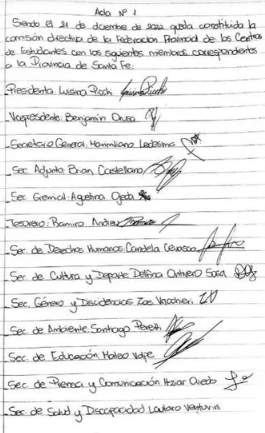 Acta Nº 1
Siendo el 21 de diciembre de 2022 queda constituida la
comisión directiva de la Federación Provincial de los Centros
de Estudiantes con los siguientes miembros correspondientes
a la Provincia de Santa Fe:
Presidenta Luisina Picchi
Vicepresidente Benjamin
Secretario General: Maximiliano Ledesma
Sec Adjunto Brian Castellano
Sec Gremial: Agustina Ojeda
Tesorero: Ramiro Andreu
Sec de Derechos Humanos Candela
Sec de Cultura y Deporte Delfina Sosa
Sec. Género y Disidencias Zoe
Sec de Ambiente Santiago Peretti
Sec. de Educación Mateo Volpe
Sec de Prensa y Comunicación Itziar Oviedo
Sec de Salud y Discapacidad Lautaro Venturini